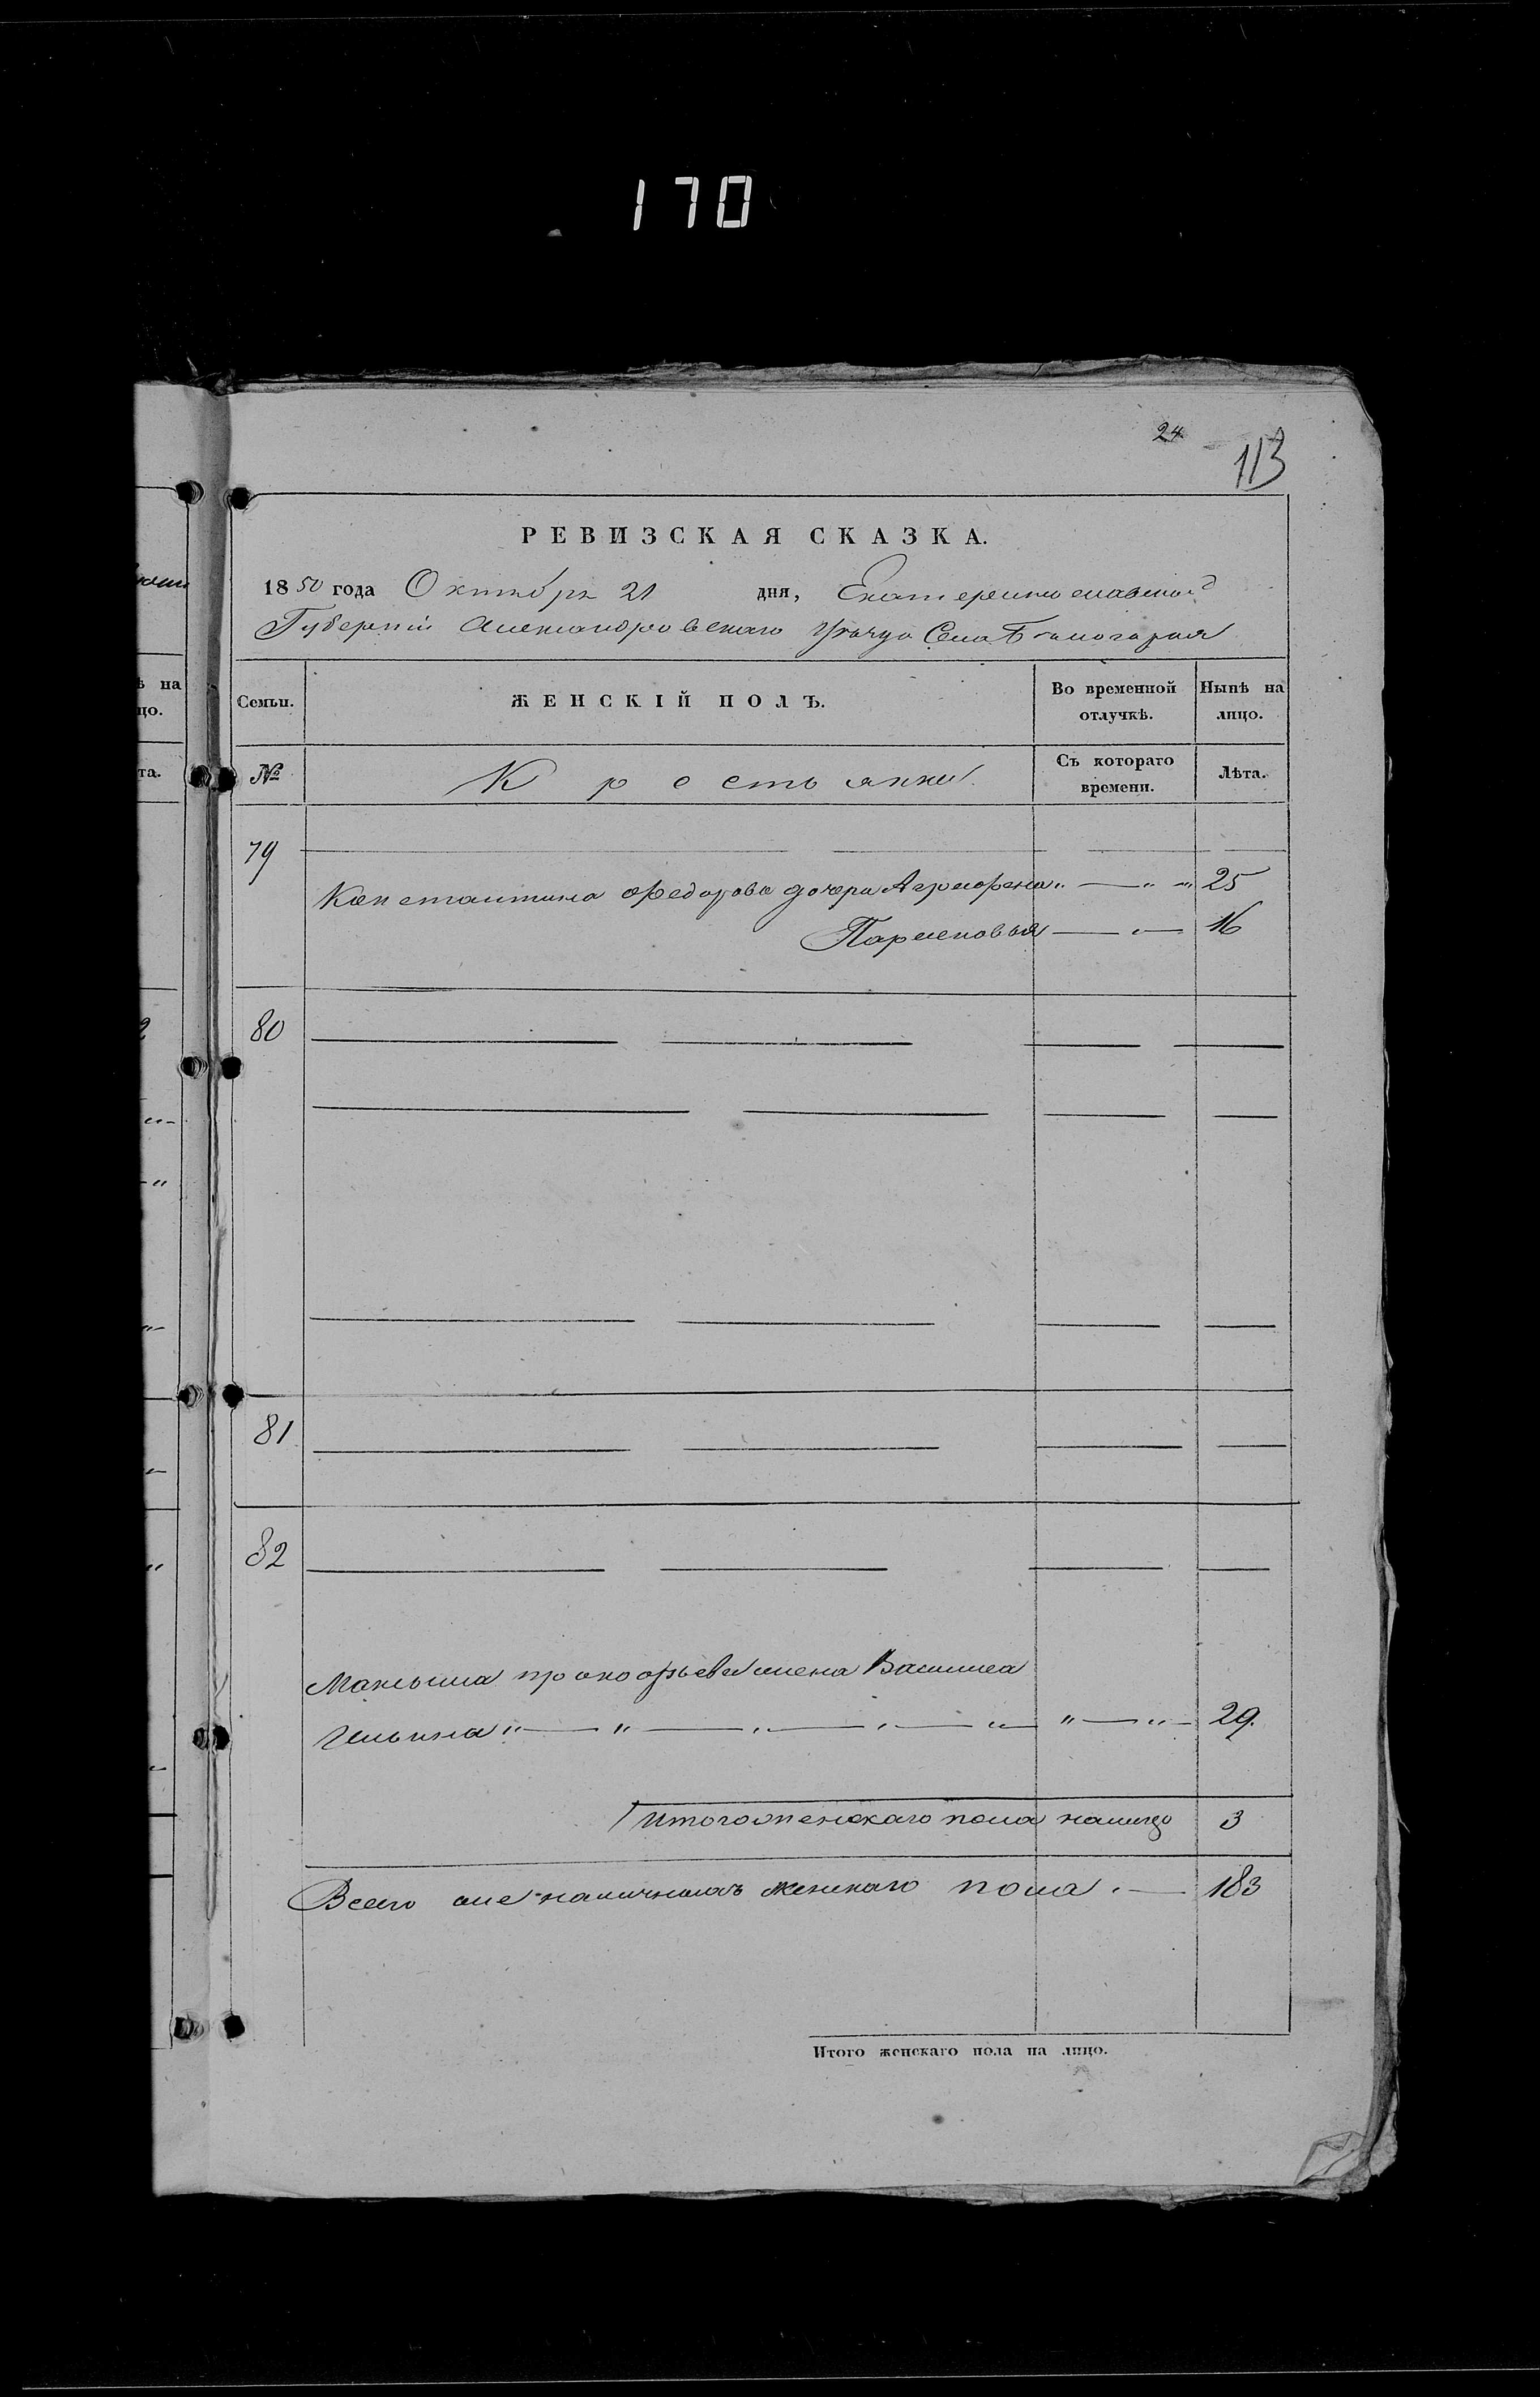 170
24
113
РЕВИЗСКАЯ СКАЗКА.
1850 года Октября 21 дня, Екатеринославской
Губерніи Александровскаго Уѣзда Села Бѣлогорья
Семьи. ЖЕНСКІЙ ПОЛЪ. Во временной отлучкѣ. Нынѣ на лицо.
№ Крестьянки Съ котораго времени. Лѣта.
79
Константина Федорова дочери Агрипена 25
16
80
81
82
Максима Прокофьева жена Василиса
Ильина 29.
Итого женскаго пола налицо 3
Всего наличныхъ женскаго пола 183
Итого женскаго пола на лицо.